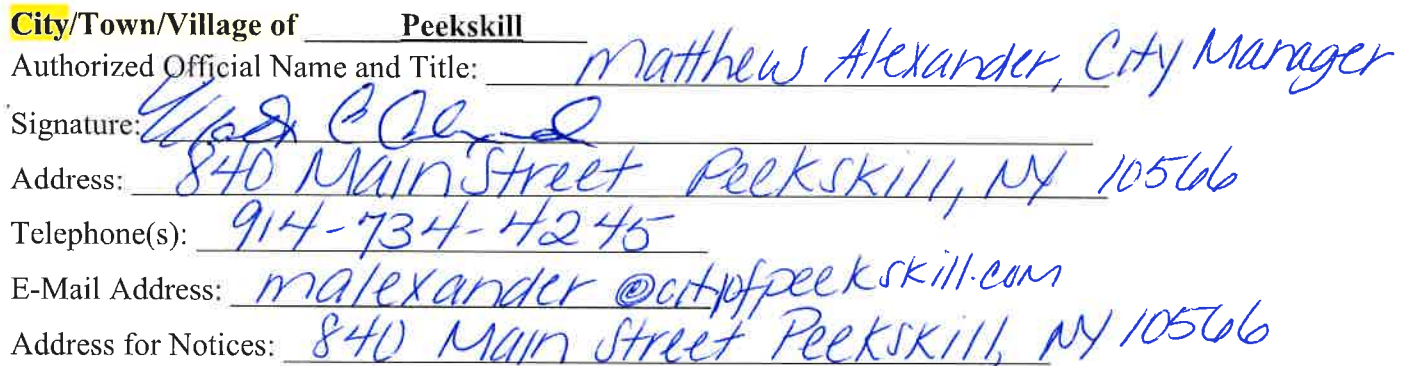 City/Town/Village of Peekskill
Authorized Official Name and Title: Matthew Alexander, City Manager
Signature:
Address: 840 Main Street Peekskill, NY 10566
Telephone(s): 914-734-4245
E-Mail Address: malexander@cityofpeekskill.com
Address for Notices: 840 Main Street Peekskill, NY 10566